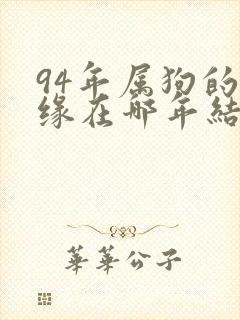 94年属狗的
缘在哪年結
華華公子